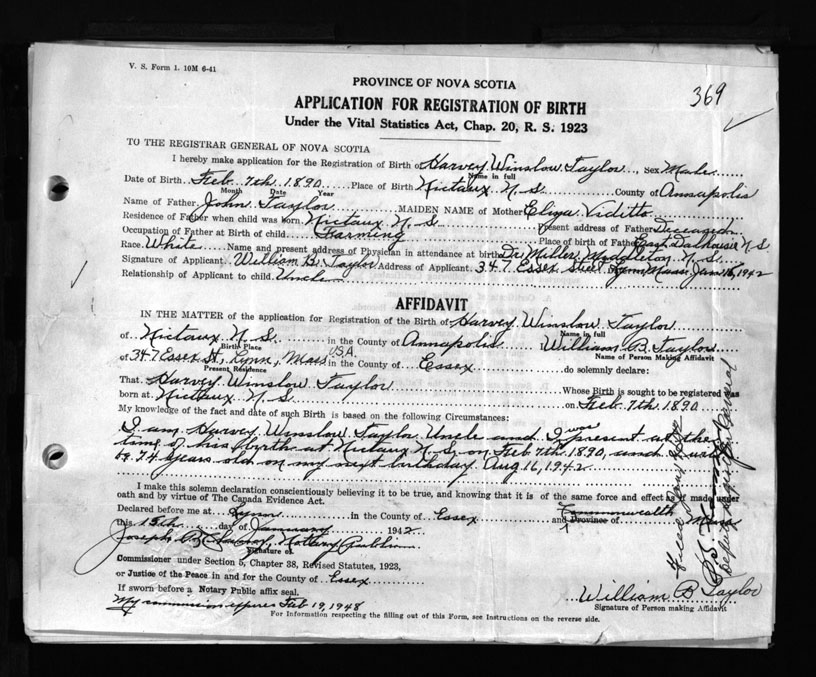 V. S. Form 1. 10M 6-41
369
PROVINCE OF NOVA SCOTIA
APPLICATION FOR REGISTRATION OF BIRTH
Under the Vital Statistics Act, Chap. 20, R. S. 1923
TO THE REGISTRAR GENERAL OF NOVA SCOTIA
I hereby make application for the Registration of Birth of Harvey Winslow Taylor, Sex Male
Name in full
Date of Birth Feb. 7th. 1890 Place of Birth Nictaux N. S. County of Annapolis
Month Date Year
Name of Father John Taylor MAIDEN NAME of Mother Eliza Viditto
Residence of Father when child was born Nictaux N. S. Present address of Father Deceased
Occupation of Father at Birth of child Farming Place of birth of Father East Dalhousie N S
Race White Name and present address of Physician in attendance at birth Dr Miller Middleton N. S.
Signature of Applicant William B. Taylor Address of Applicant 347 Essex Street Lynn Mass Jan 15, 1942
Relationship of Applicant to child Uncle
AFFIDAVIT
IN THE MATTER of the application for Registration of the Birth of Harvey Winslow Taylor
Name in full
of Nictaux N. S. in the County of Annapolis William B. Taylor
Birth Place Name of Person Making Affidavit
of 347 Essex St, Lynn, Mass U.S.A. in the County of Essex do solemnly declare:
Present Residence
That Harvey Winslow Taylor Whose Birth is sought to be registered was
born at Nictaux N. S. on Feb 7th. 1890
My knowledge of the fact and date of such Birth is based on the following Circumstances:
I am Harvey Winslow Taylor Uncle and I was present at the
time of his birth at Nictaux N. S. on Feb 7th 1890, and I will
be 74 years old on my next birthday Aug 16, 1942
I make this solemn declaration conscientiously believing it to be true, and knowing that it is of the same force and effect as if made under
oath and by virtue of The Canada Evidence Act.
Declared before me at Lynn in the County of Essex and Province of Commonwealth Mass
this 15th day of January 1942
Joseph Notary Public
Signature of
Commissioner under Section 5, Chapter 38, Revised Statutes, 1923,
or Justice of the Peace in and for the County of Essex
If sworn before a Notary Public affix seal.
My commission expires Feb 19, 1948
William B Taylor
Signature of Person making Affidavit
For Information respecting the filling out of this Form, see Instructions on the reverse side.
Deputy Registrar General